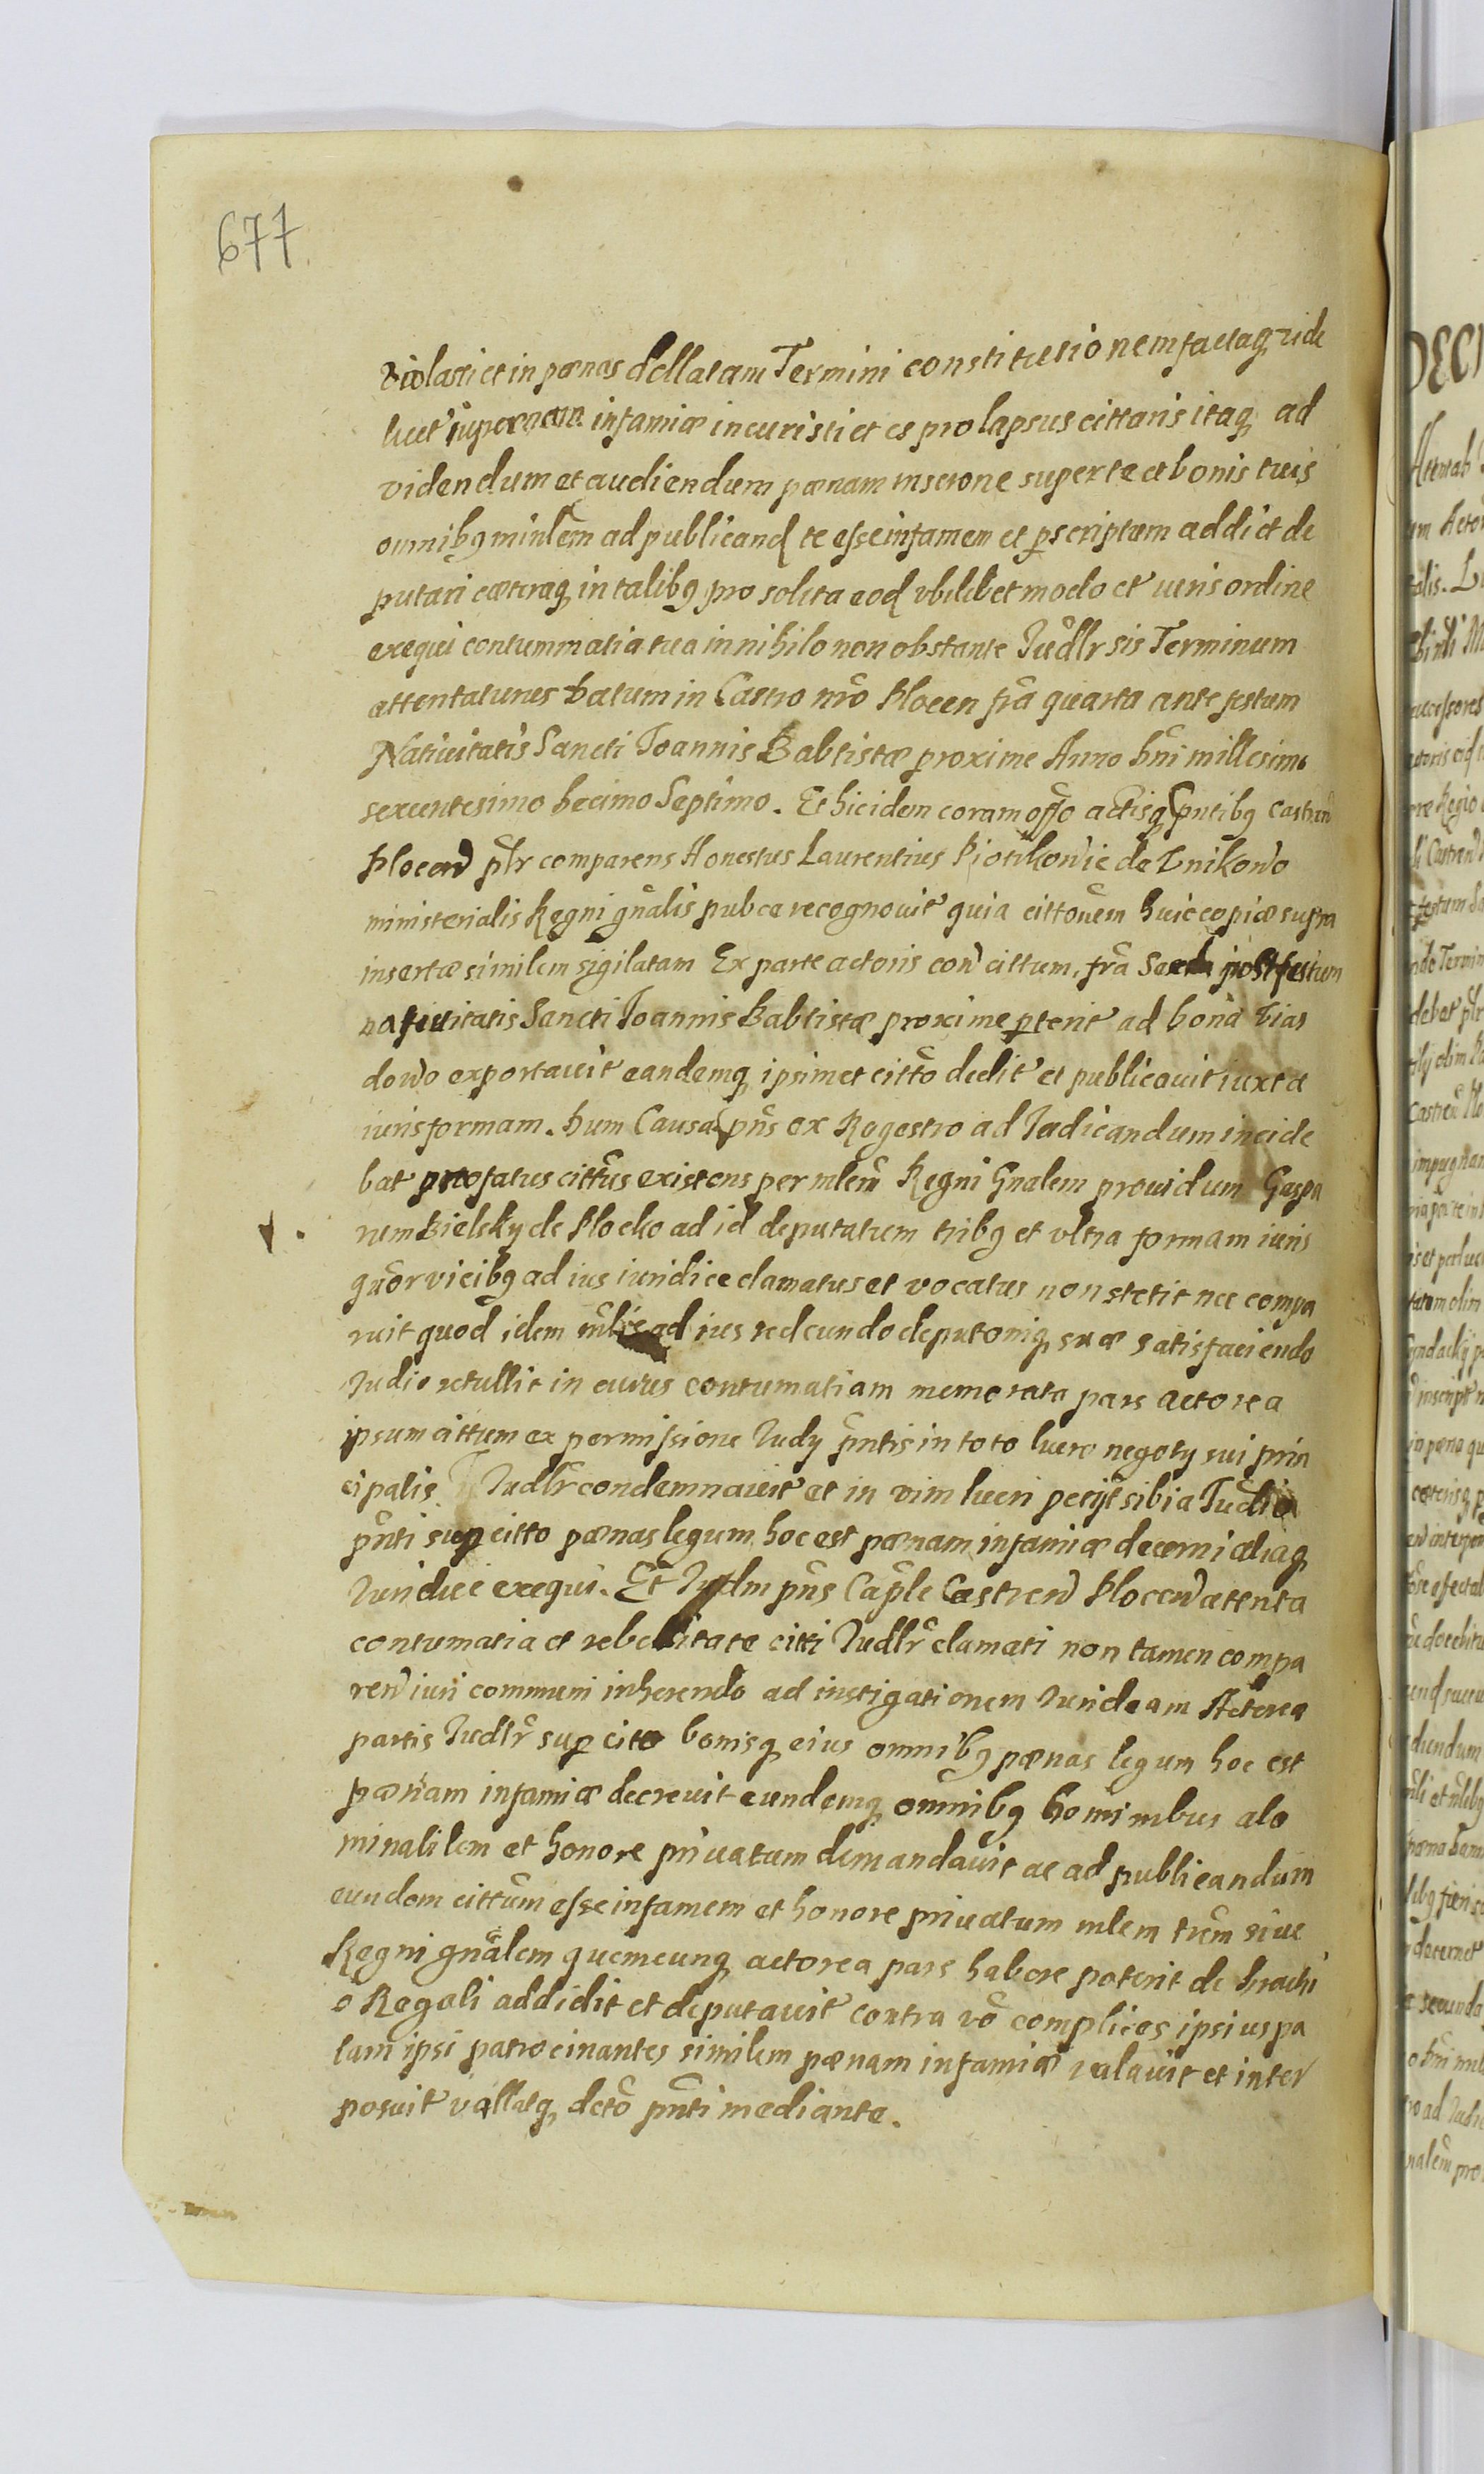 677
violasti et in pœnas dellatam Termini constitutionem factaq, vide
licet infamiæ incuristi et es prolapsus cittaris itaq, ad
videndum et audiendum pœnam inscrone super te et bonis tuis
omnibq minlem ad publicand te esse infamem et pscriptum addi et de
putari cæteraq, in talibq pro solita eod vbilibet modo et iuris ordine
exequi contummatia tua in nihilo non obstante Iudlr sis Terminum
attentaturus Datum in Castro nro Plocen fra quarta ante festum
Natiuitatis Sancti Ioannis Babtistæ proxime Anno Dni millesimo
sexcentesimo Decimo Septimo. Et hic idem coram offo actisq pntibq Castren
Plocen plr comparens Honestus Laurentius Piotrkowic de Vnikowo
ministerialis Regni gnalis pub ce recognouit quia cittonem huic copiæ supra
insertæ similem sigilatam Ex parte actoris con cittum, fra post festum
natiuitatis Sancti Ioannis Babtistæ proxime pterit ad bona
dowo exportauit eandemq, ipsimet citto dedit et publicauit iuxta
iuris formam. Dum Causa pns ex Regestro ad Iudicandum incide
bat profatus cittus existens per mlem Regni Gnalem prouidum Gaspa
rum Bielsky de Plocko ad id deputatum tribq et vltra formam iuris
quor vicibq ad ius iuridice clamatus et vocatus non stetit nec compa
ruit quod idem mlis ad ius redeundo deputoniq, suæ satisfaciendo
Iudio retullit in cuius contumatiam memorata pars actorea
ipsum cittum ex permissione Iudy pntis in toto lucro negoty sui prin
cipalis Iudlr condemnauit et in vim lucri petyt sibi a Iudio
pnti sup citto pœnas legum hoc est pœnam infamiæ decerni aliaq,
Iuridice exequi. Et Iudm pns Caple Castren Plocen attenta
contumatia et rebellitate citti Iudlr clamati non tamen compa
ren iuri communi inherendo ad instigationem Iuridcam Actorea
partis Iudlr sup cito bonisq, eius omnibq pœnas legum hoc est
pœnam infamiæ decreuit eundemq, omnibq hominibus abo
minabilem et honore priuatum demandauit ac ad publicandum
eundem cittum esse infamem et honore priuatum mlem trem siue
Regni gnalem quemcunq, actorea pars habere poterit de brachi
o Regali addidit et deputauit contra vo complices ipsius pa
lam ipsi patrocinantes similem pœnam infamiæ valauit et inter
posuit vallatq, dcto pnti mediante.